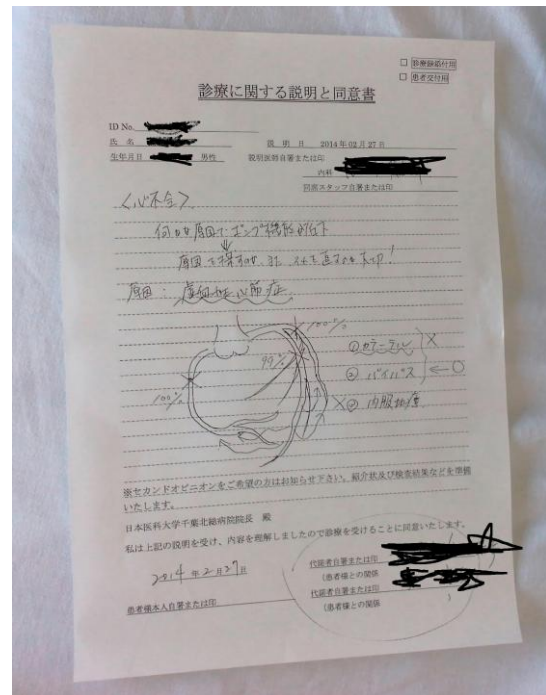 診療録添付用
患者交付用
診療に関する説明と同意書
ID No.
氏 名
説 明 日 2014年02月27日
生年月日 男性 説明医師自署または印
内科
同席スタッフ自署または印
<心不全>
何かな原因でポンプ機能が低下
原因を探すのは、
原因: 虚血性心筋症
100%
99%
100%
① カテーテル X
② バイパス ←○
X③ 内服加療
※セカンドオピニオンをご希望の方はお知らせ下さい。紹介状及び検査結果などを準備
いたします。
日本医科大学千葉北総病院院長 殿
私は上記の説明を受け、内容を理解しましたので診療を受けることに同意いたします。
2014年2月27日
代諾者自署または印
(患者様との関係
代諾者自署または印
(患者様との関係 )
患者様本人自署または印